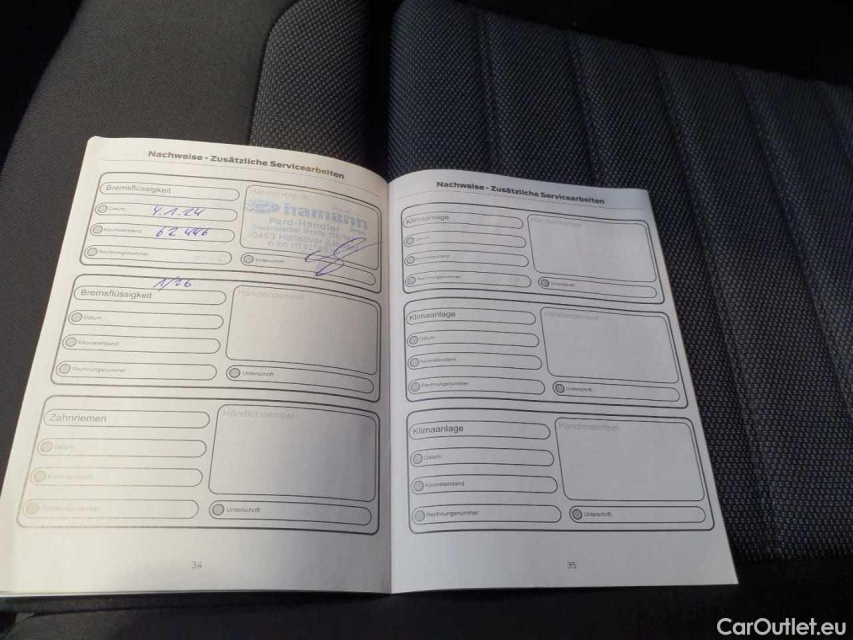 Nachweise - Zusätzliche Servicearbeiten
Bremsflüssigkeit
Händlerstempel
Datum 4.1.24
Kilometerstand 62 446
Rechnungsnummer
hamann
Ford-Händler
Unterschrift
Bremsflüssigkeit 1/26
Händlerstempel
Datum
Kilometerstand
Rechnungsnummer
Unterschrift
Zahnriemen
Händlerstempel
Datum
Kilometerstand
Rechnungsnummer
Unterschrift
34
Nachweise - Zusätzliche Servicearbeiten
Klimaanlage
Händlerstempel
Datum
Kilometerstand
Rechnungsnummer
Unterschrift
Klimaanlage
Händlerstempel
Datum
Kilometerstand
Rechnungsnummer
Unterschrift
Klimaanlage
Händlerstempel
Datum
Kilometerstand
Rechnungsnummer
Unterschrift
35
CarOutlet.eu